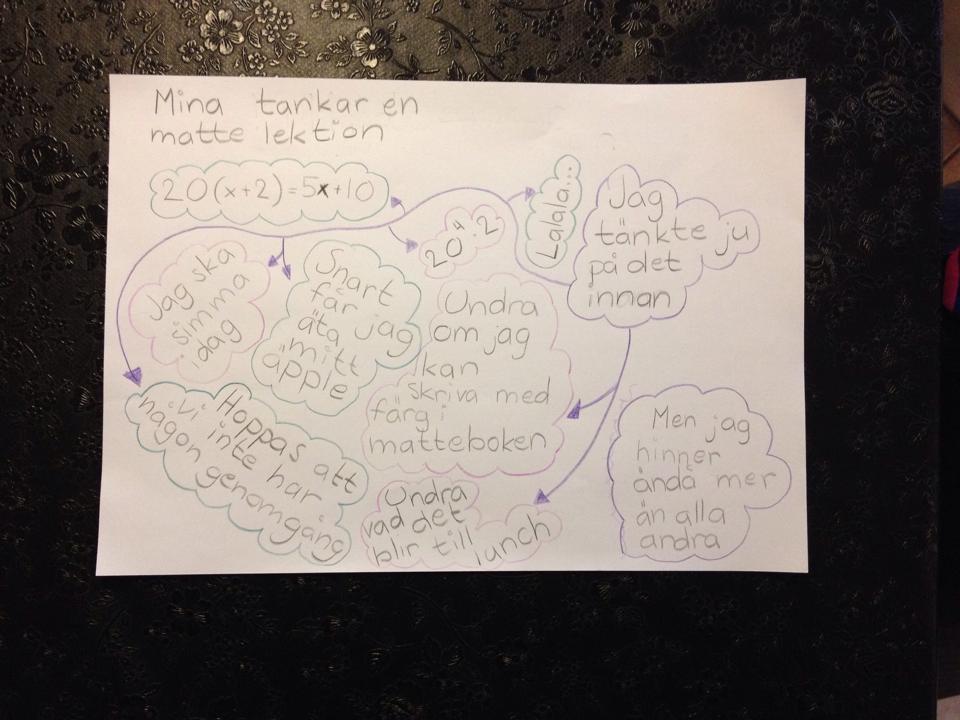 Mina tankar en
matte lektion
20(x+2)=5x+10
20⁴·2
Lalala...
Jag
tänkte ju
på det
innan
Jag ska
simma
idag
Snart
får jag
äta
mitt
äpple
Undra
om jag
kan
skriva med
färg i
matteboken
Hoppas att
vi inte har
någon genomgång
Undra
vad det
blir till
lunch
Men jag
hinner
ändå mer
än alla
andra